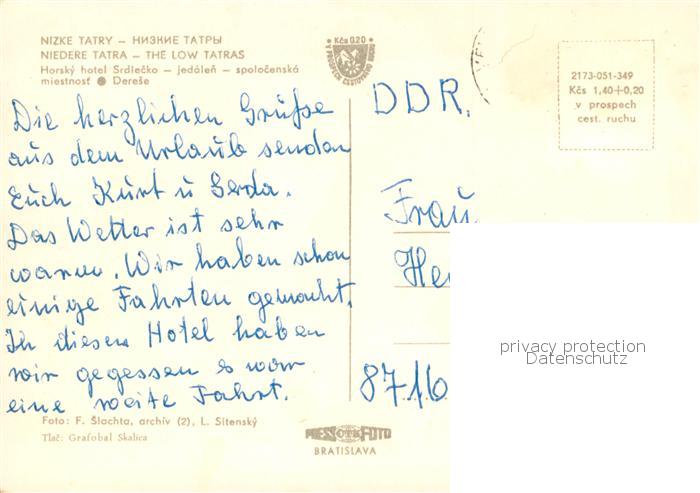 NIZKE TATRY – НИЗКИЕ ТАТРЫ
NIEDERE TATRA – THE LOW TATRAS
Horský hotel Srdlečko – jedáleň – spoločenská
miestnosť ● Dereše
Kčs 0,20
V PROSPECH CESTOVNÉHO RUCHU
2173-051-349
Kčs 1,40+0,20
v prospech
cest. ruchu
Die herzlichen Grüße
aus dem Urlaub senden
Euch Kurt u Gerda.
Das Wetter ist sehr
warm. Wir haben schon
einige Fahrten gemacht.
In diesem Hotel haben
wir gegessen es war
eine weite Fahrt.
DDR.
Frau
He
8716
privacy protection
Datenschutz
Foto: F. Šlachta, archív (2), L. Sitenský
Tlač: Grafobal Skalica
PRESSFOTO
BRATISLAVA